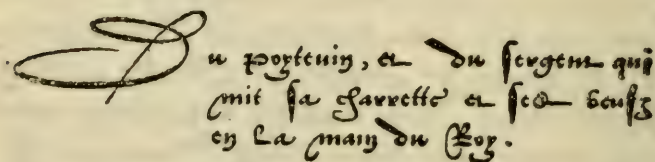 Du poyteuin, et du sergent qui
mit sa charrette et ses beufz
en la main du Roy.